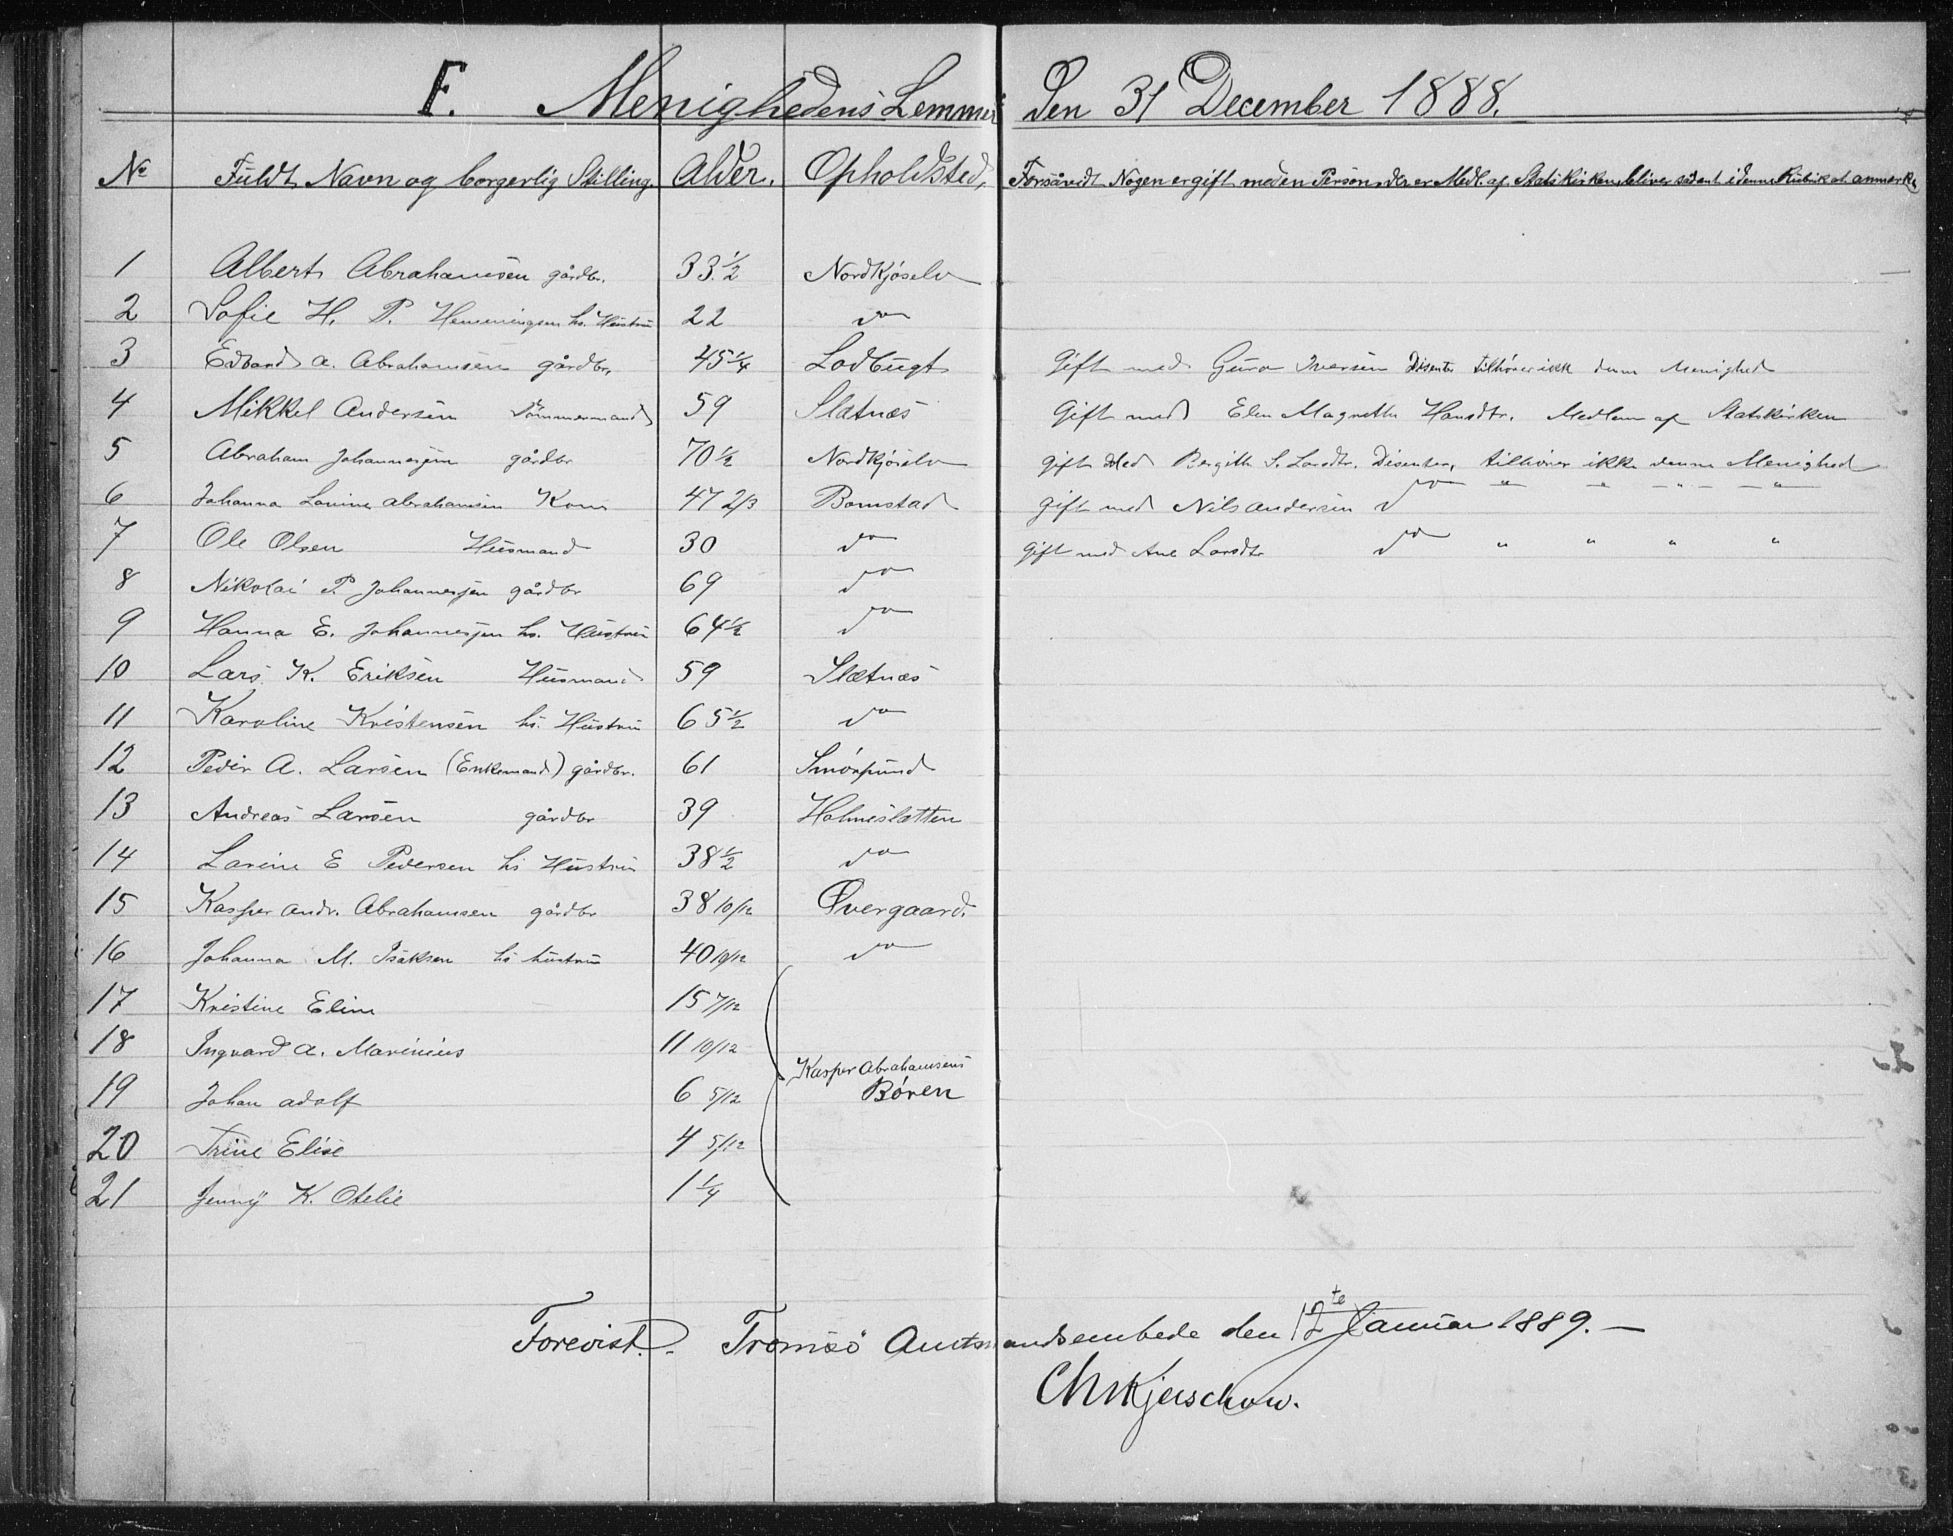 F. Menighedens Lemmer Den 31 December 1888.
No Fuldt Navn og borgerlig Stilling. Alder. Opholdsted, Forsåvidt Nogen er gift med en Person, der er Medl. af Statskirken, bliver sådant i denne Rubrik at anmærke
1 Albert Abrahamsen gårdbr. 33 1/2 Nordkjoselv
2 Sofie H. P. Henningsen hs. Hustru 22 do
3 Edvard A. Abrahamsen gårdbr. 45 1/4 Lodbugt Gift med Guro Iversen Disenter tilhører ikk denne Menighed
4 Mikkel Andersen Tømmermand 59 Slætnæs Gift med Elen Magrethe Hansdtr. Medlem af Statskirken
5 Abraham Johannesjen gårdbr 70 1/2 Nordkjoselv gift Med Bergith S. Larsdtr. Disenter, tilhører ikke denne Menighed
6 Johanna Lovine Abrahamsen Kone 47 2/3 Bomstad gift med Nils Andersen do " " " "
7 Ole Olsen Husmand 30 do gift med Ane Larsdtr do " " " "
8 Nikolai P. Johannesjen gårdbr 69 do
9 Hanna E. Johannesjen hs. Hustru 64 1/2 do
10 Lars K. Eriksen Husmand 59 Slætnæs
11 Karoline Kristensen hs. Hustru 65 1/2 do
12 Peder A. Larsen (Enkemand) gårdbr. 61 Smörpund
13 Andreas Larsen gårdbr 39 Holmeslætten
14 Lovine E Pedersen hs Hustru 38 1/2 do
15 Kasper Andr. Abrahamsen gårdbr 38 10/12 Øvergaard.
16 Johanna M. Isaksen hs hustru 40 10/12 do
17 Kristine Eline 15 7/12
18 Ingvard A. Marinius 11 10/12
Kasper Abrahamsens
19 Johan Adolf 6 5/12 Børen
20 Trine Elise 4 5/12
21 Jenny K. Otelie 1 1/4
Forevist. Tromsö Amtmandsembede den 12te Januar 1889.—
Chr Kjerschow.